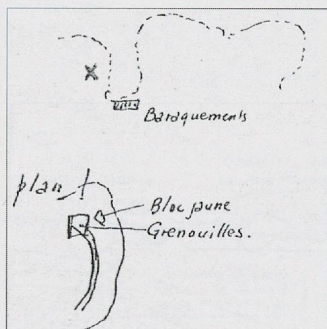 Baraquements
plan
Bloc jaune
Grenouilles.